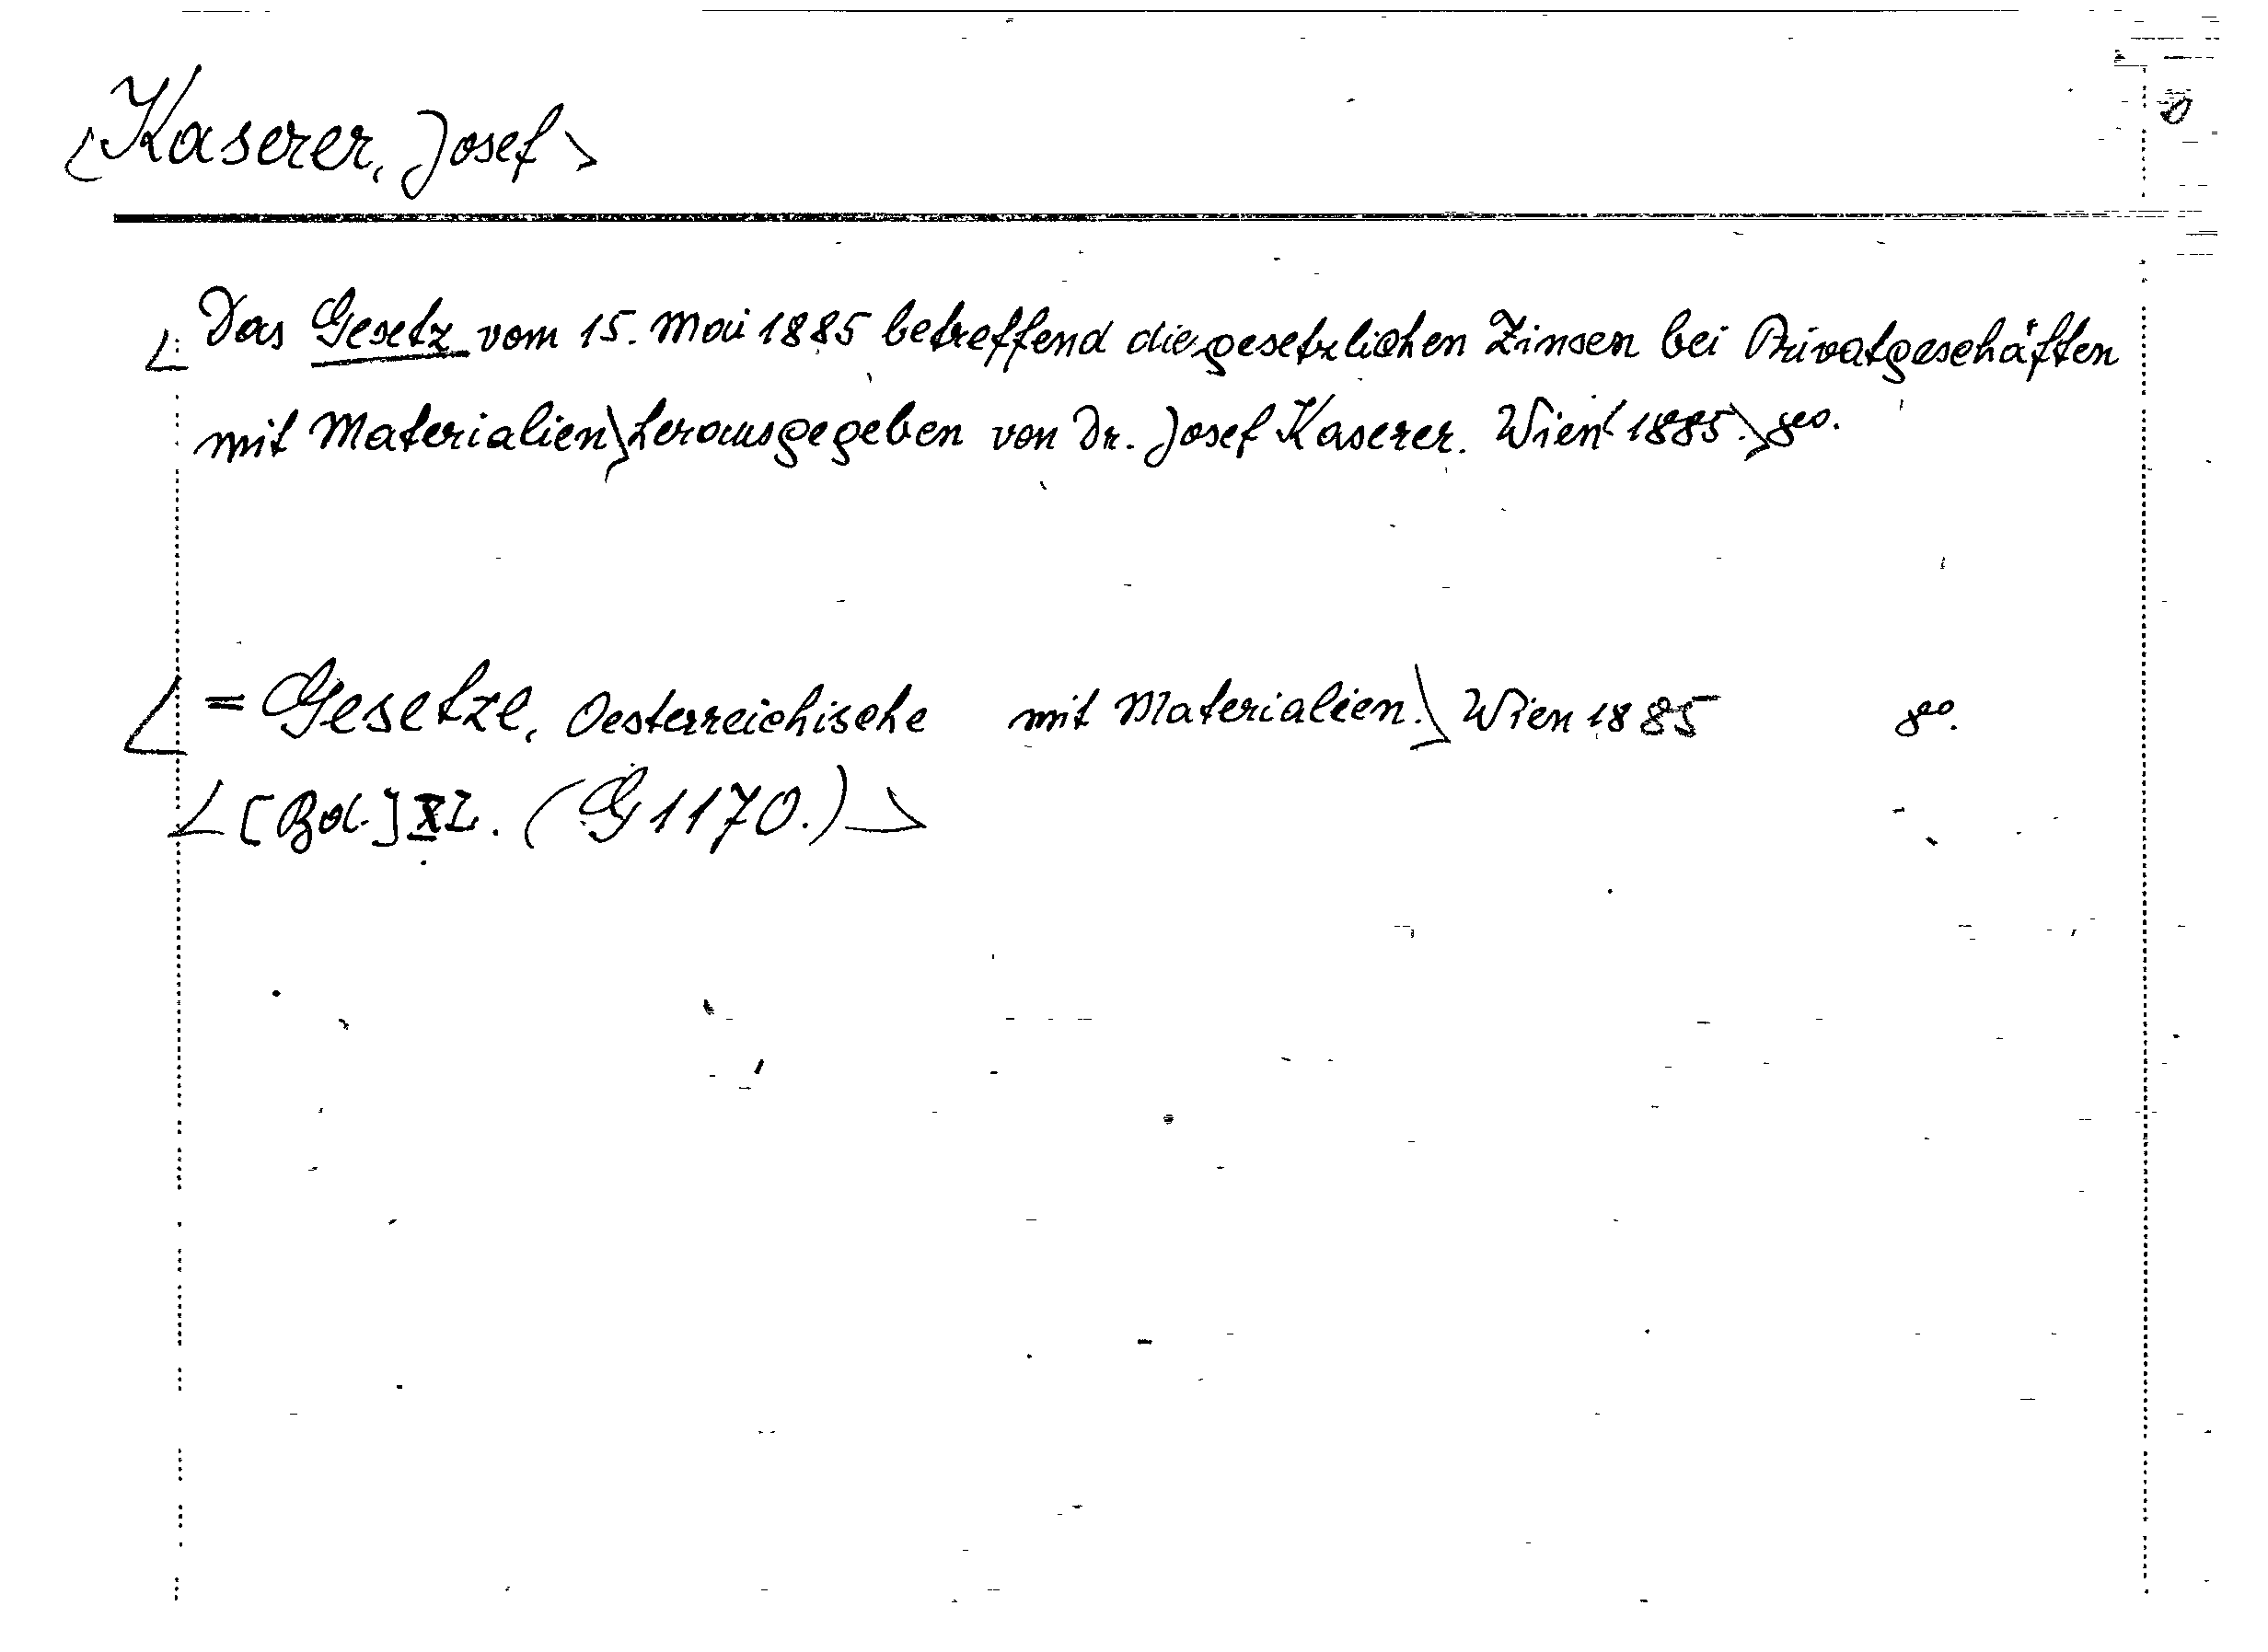 <Kaserer, Josef>
<Das Gesetz vom 15. Mai 1885 betreffend die gesetzlichen Zinsen bei Privatgeschäften
mit Materialien> herausgegeben von Dr. Josef Kaserer. Wien < 1885.> 8º.
<= Gesetze, Oesterreichische mit Materialien.> Wien 1885 8º.
<[Bd.] XL. (G 1170.)>